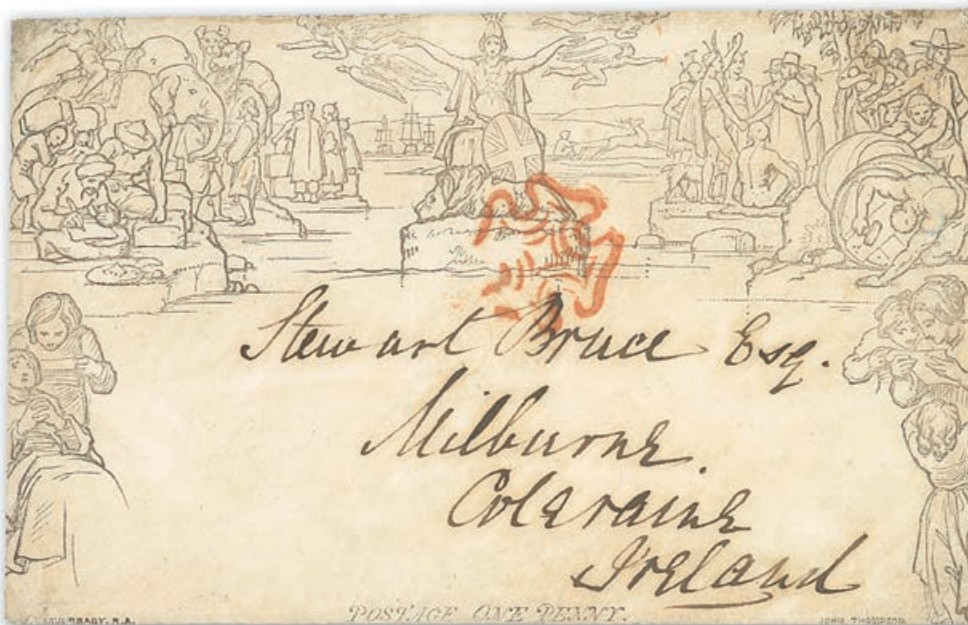 Stewart Bruce Esq.
Milburne.
Coleraine
Ireland
POSTAGE ONE PENNY.
R.A.
JOHN THOMPSON